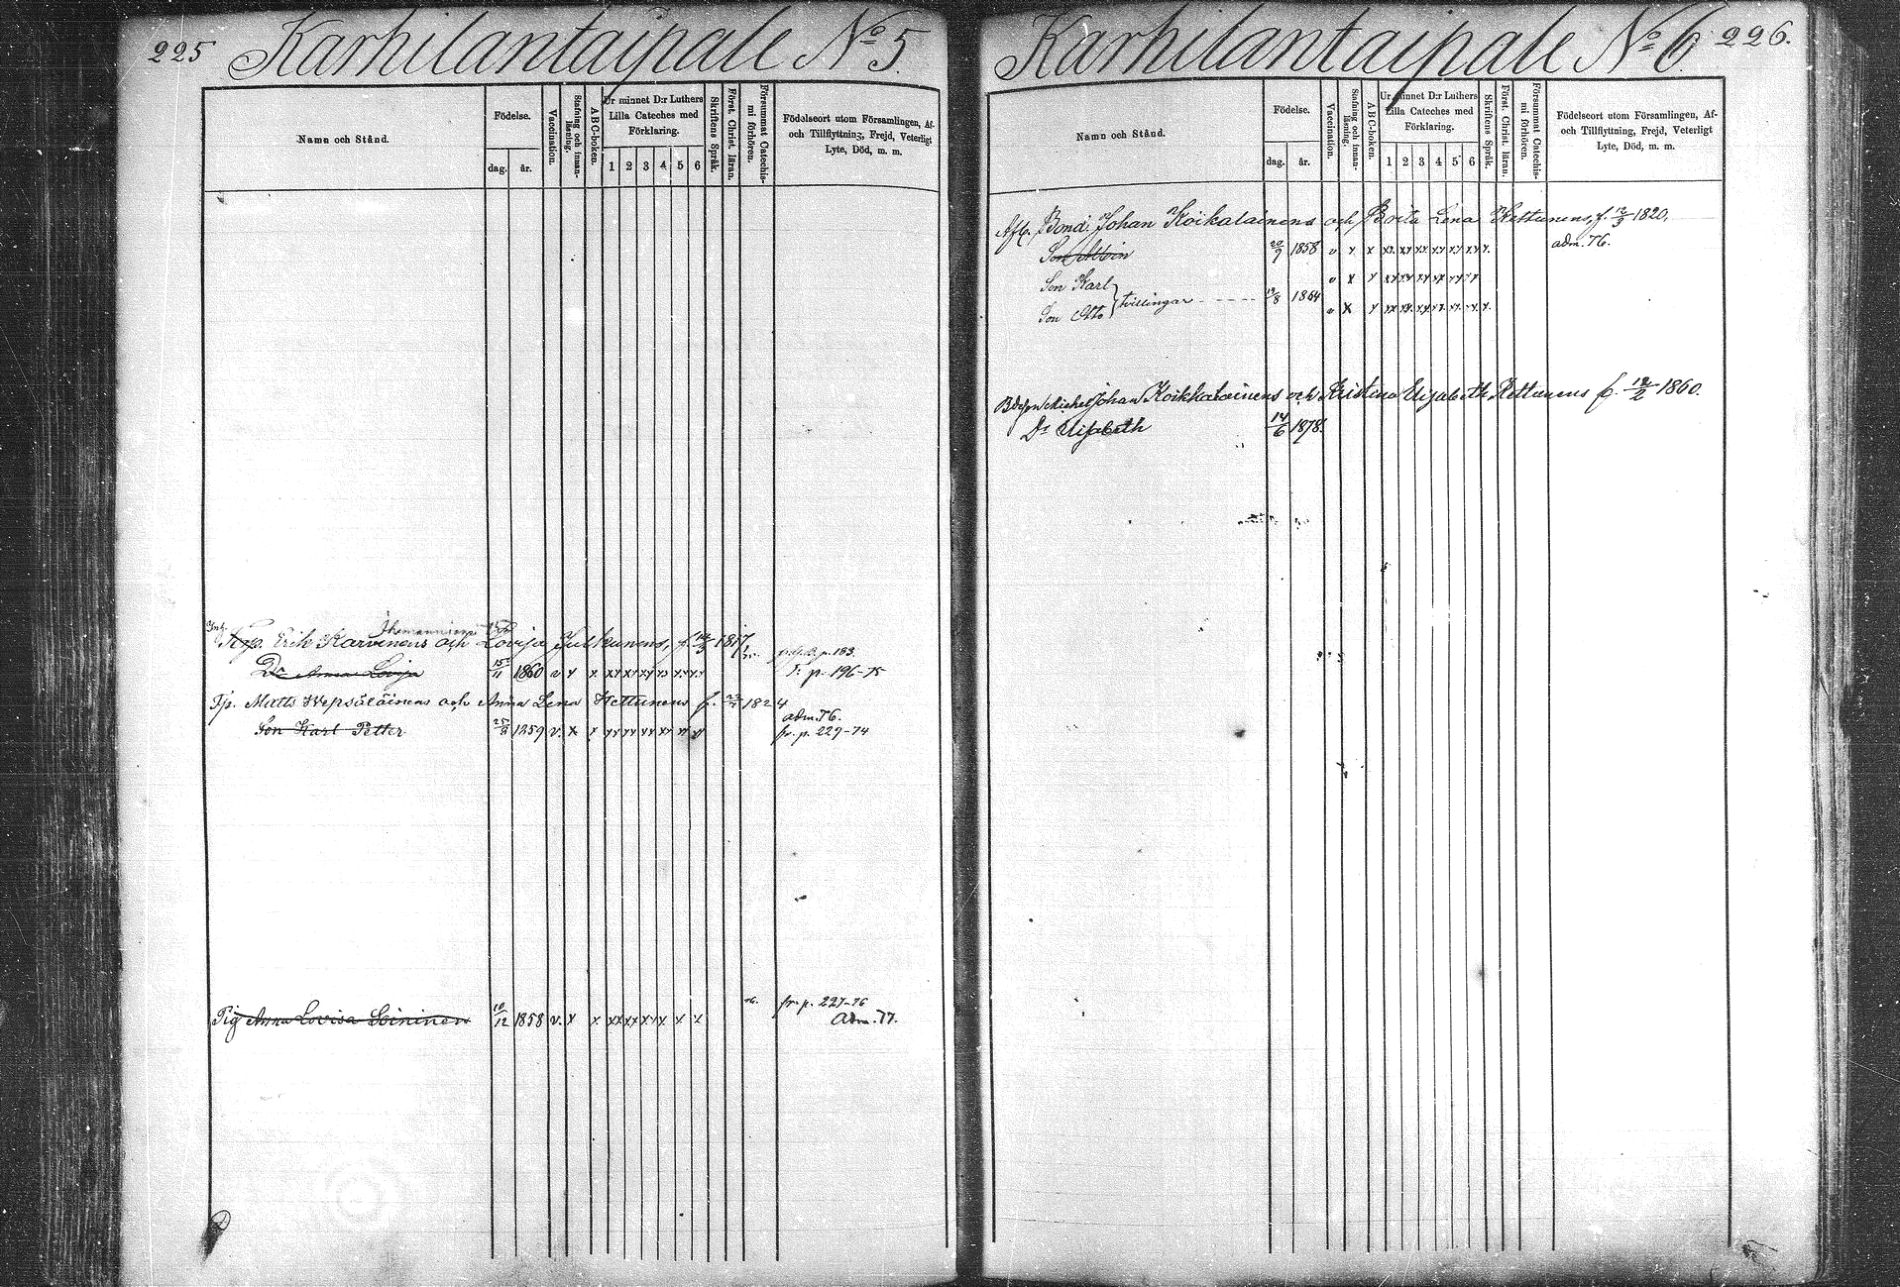 225 Karhilantaipale No 5.
Namn och Stånd.
Födelse.
dag. år.
Vaccination.
Stafning och innanläsning.
ABC-boken.
Ur minnet D:r Luthers
Lilla Cateches med
Förklaring.
1 2 3 4 5 6
Skriftens Språk.
Först. Christ. läran.
Försummat Catechismi förhören.
Födelseort utom Församlingen, Af-
och Tillflyttning, Frejd, Veterligt
Lyte, Död, m. m.
Erik Karvinens och Lovisa Julkunens, f. 1817
Dr Anna Lovisa 15/11 1860 v x x xx xx xx xx xx xx p. 196-75
Matts Wepsäläinens och Anna Lena Kettunens f. 1824
adm. 76.
Son Karl Petter 1859 v. x x xx xx xx xx xx xx fr. p. 229-74
fr. p. 227-76
Pig Anna Lovisa Leininen 10/12 1858 v. x x xx xx xx x x x Adm. 77.
Karhilantaipale No 6. 226.
Namn och Stånd.
Födelse.
dag. år.
Vaccination.
Stafning och innanläsning.
ABC-boken.
Ur minnet D:r Luthers
Lilla Cateches med
Förklaring.
1 2 3 4 5 6
Skriftens Språk.
Först. Christ. läran.
Försummat Catechismi förhören.
Födelseort utom Församlingen, Af-
och Tillflyttning, Frejd, Veterligt
Lyte, Död, m. m.
Afl. Bond. Johan Koikalainens och Brita Lena Kettunens, f. 12/3 1820.
Son Alvin 20/9 1858 v x x xx xx xx xx xx xx x. adm. 76.
Son Karl v x x xx xx xx xx xx xx
tvillingar 19/8 1864
Son Otto v x x xx xx xx xx xx xx x.
Michel Johan Koikkalainens och Kristina Elisabeth Kettunens f. 12/2 1860.
Dr Elisabeth 14/6 1878.